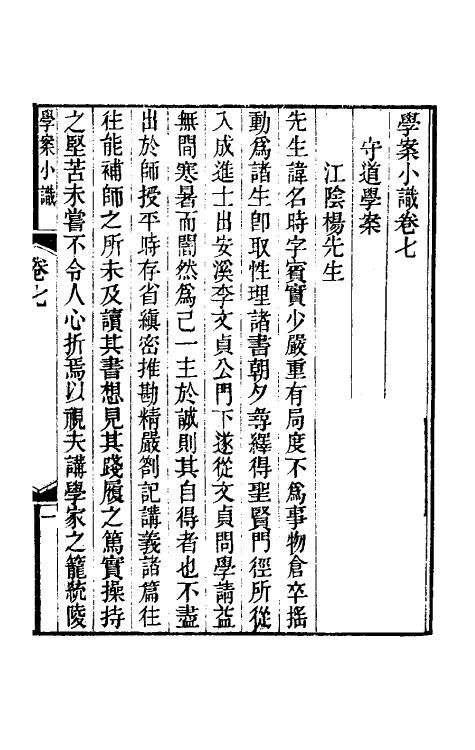 學案小識卷七
守道學案
江陰楊先生
先生諱名時字賓實少嚴重有局度不爲事物倉卒搖
動爲諸生卽取性理諸書朝夕尋繹得聖賢門徑所從
入成進士出安溪李文貞公門下遂從文貞問學請益
無間寒暑而闇然爲己一主於誠則其自得者也不盡
出於師授平時存省縝密推勘精嚴劄記講義諸篇往
往能補師之所未及讀其書想見其踐履之篤實操持
之堅苦未嘗不令人心折焉以視夫講學家之籠統陵
學案小識
卷七
一